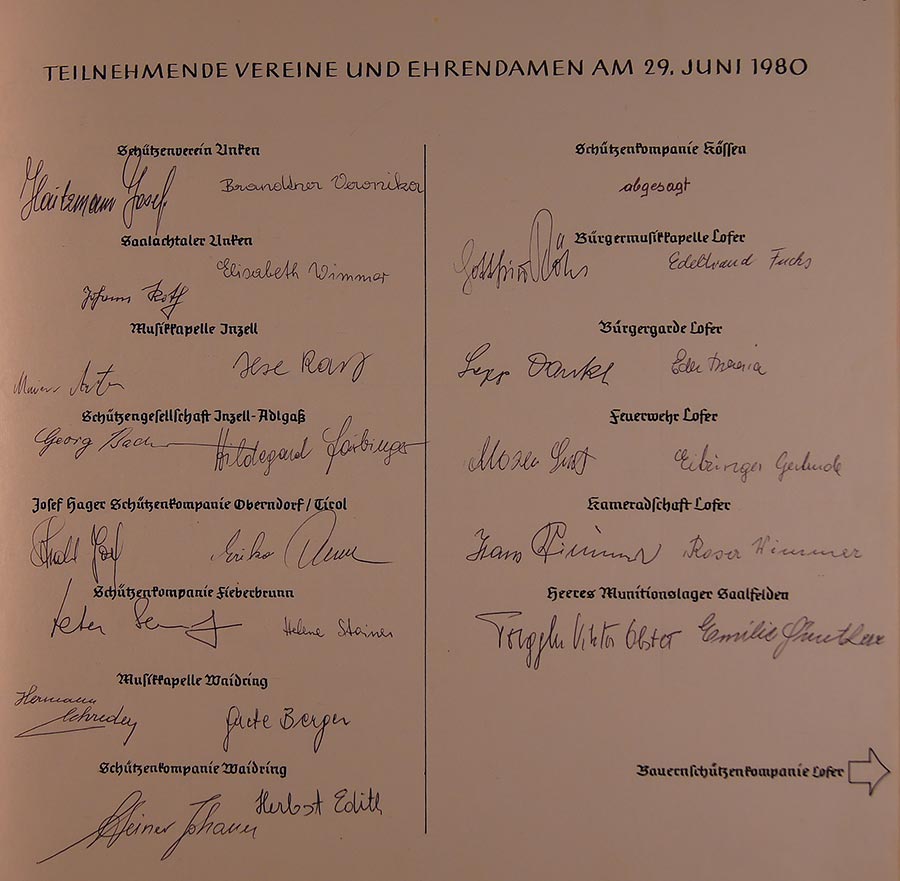 TEILNEHMENDE VEREINE UND EHRENDAMEN AM 29. JUNI 1980
Schützenverein Unken
Haitzmann Josef Brandtner Veronika
Saalachtaler Unken
Elisabeth Wimmer
Johann
Musikkapelle Inzell
Schützengesellschaft Inzell-Adlgaß
Georg Hildegard
Josef Hager Schützenkompanie Oberndorf/Tirol
Josef Erika
Schützenkompanie Fieberbrunn
Peter Helene Steiner
Musikkapelle Waidring
Hermann
Grete Berger
Schützenkompanie Waidring
Herbst Edith
Steiner Johann
Schützenkompanie Kössen
abgesagt
Bürgermusikkapelle Lofer
Edeltraud Fuchs
Bürgergarde Lofer
Sepp Dankl Eder Maria
Feuerwehr Lofer
Moser Eibinger Gertrude
Kameradschaft Lofer
Hans Wimmer Rosa Wimmer
Heeres Munitionslager Saalfelden
Viktor Obster Emilie
Bauernschützenkompanie Lofer